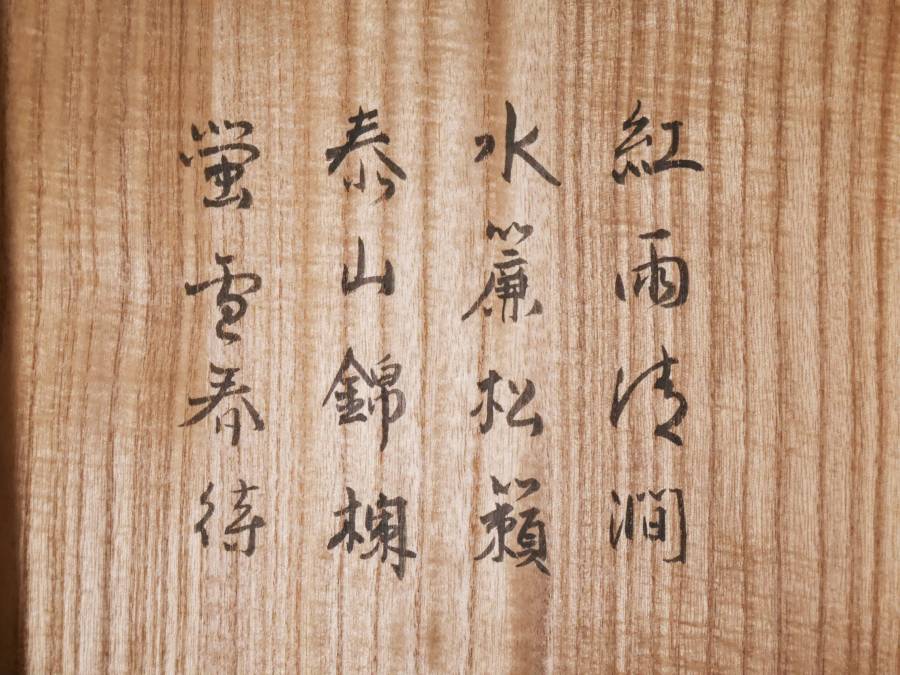 紅雨清澗
水簾松籟
泰山錦楓
螢雪春待